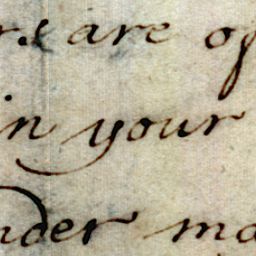 are of
in your
nder ma